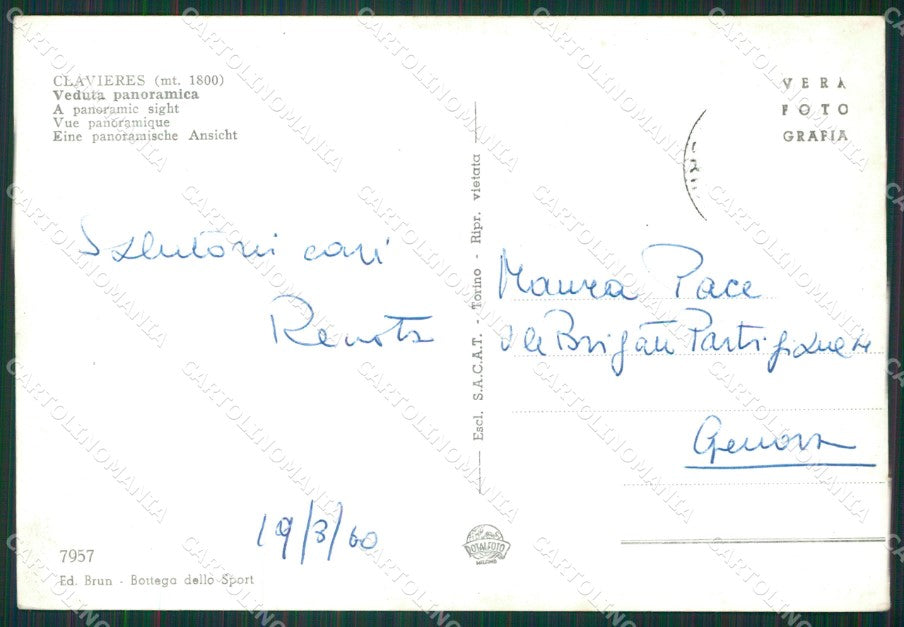 CLAVIERES (mt. 1800)
Veduta panoramica
A panoramic sight
Vue panoramique
Eine panoramische Ansicht
VERA
FOTO
GRAFIA
Salutoni cari
Renata
Escl. S.A.C.A.T. - Torino - Ripr. vietata
Maura Pace
V.le Brigate Partigiane
Genova
19/3/60
7957
Ed. Brun - Bottega dello Sport
TOTALFOTO
MILANO
CARTOLINOMANIA